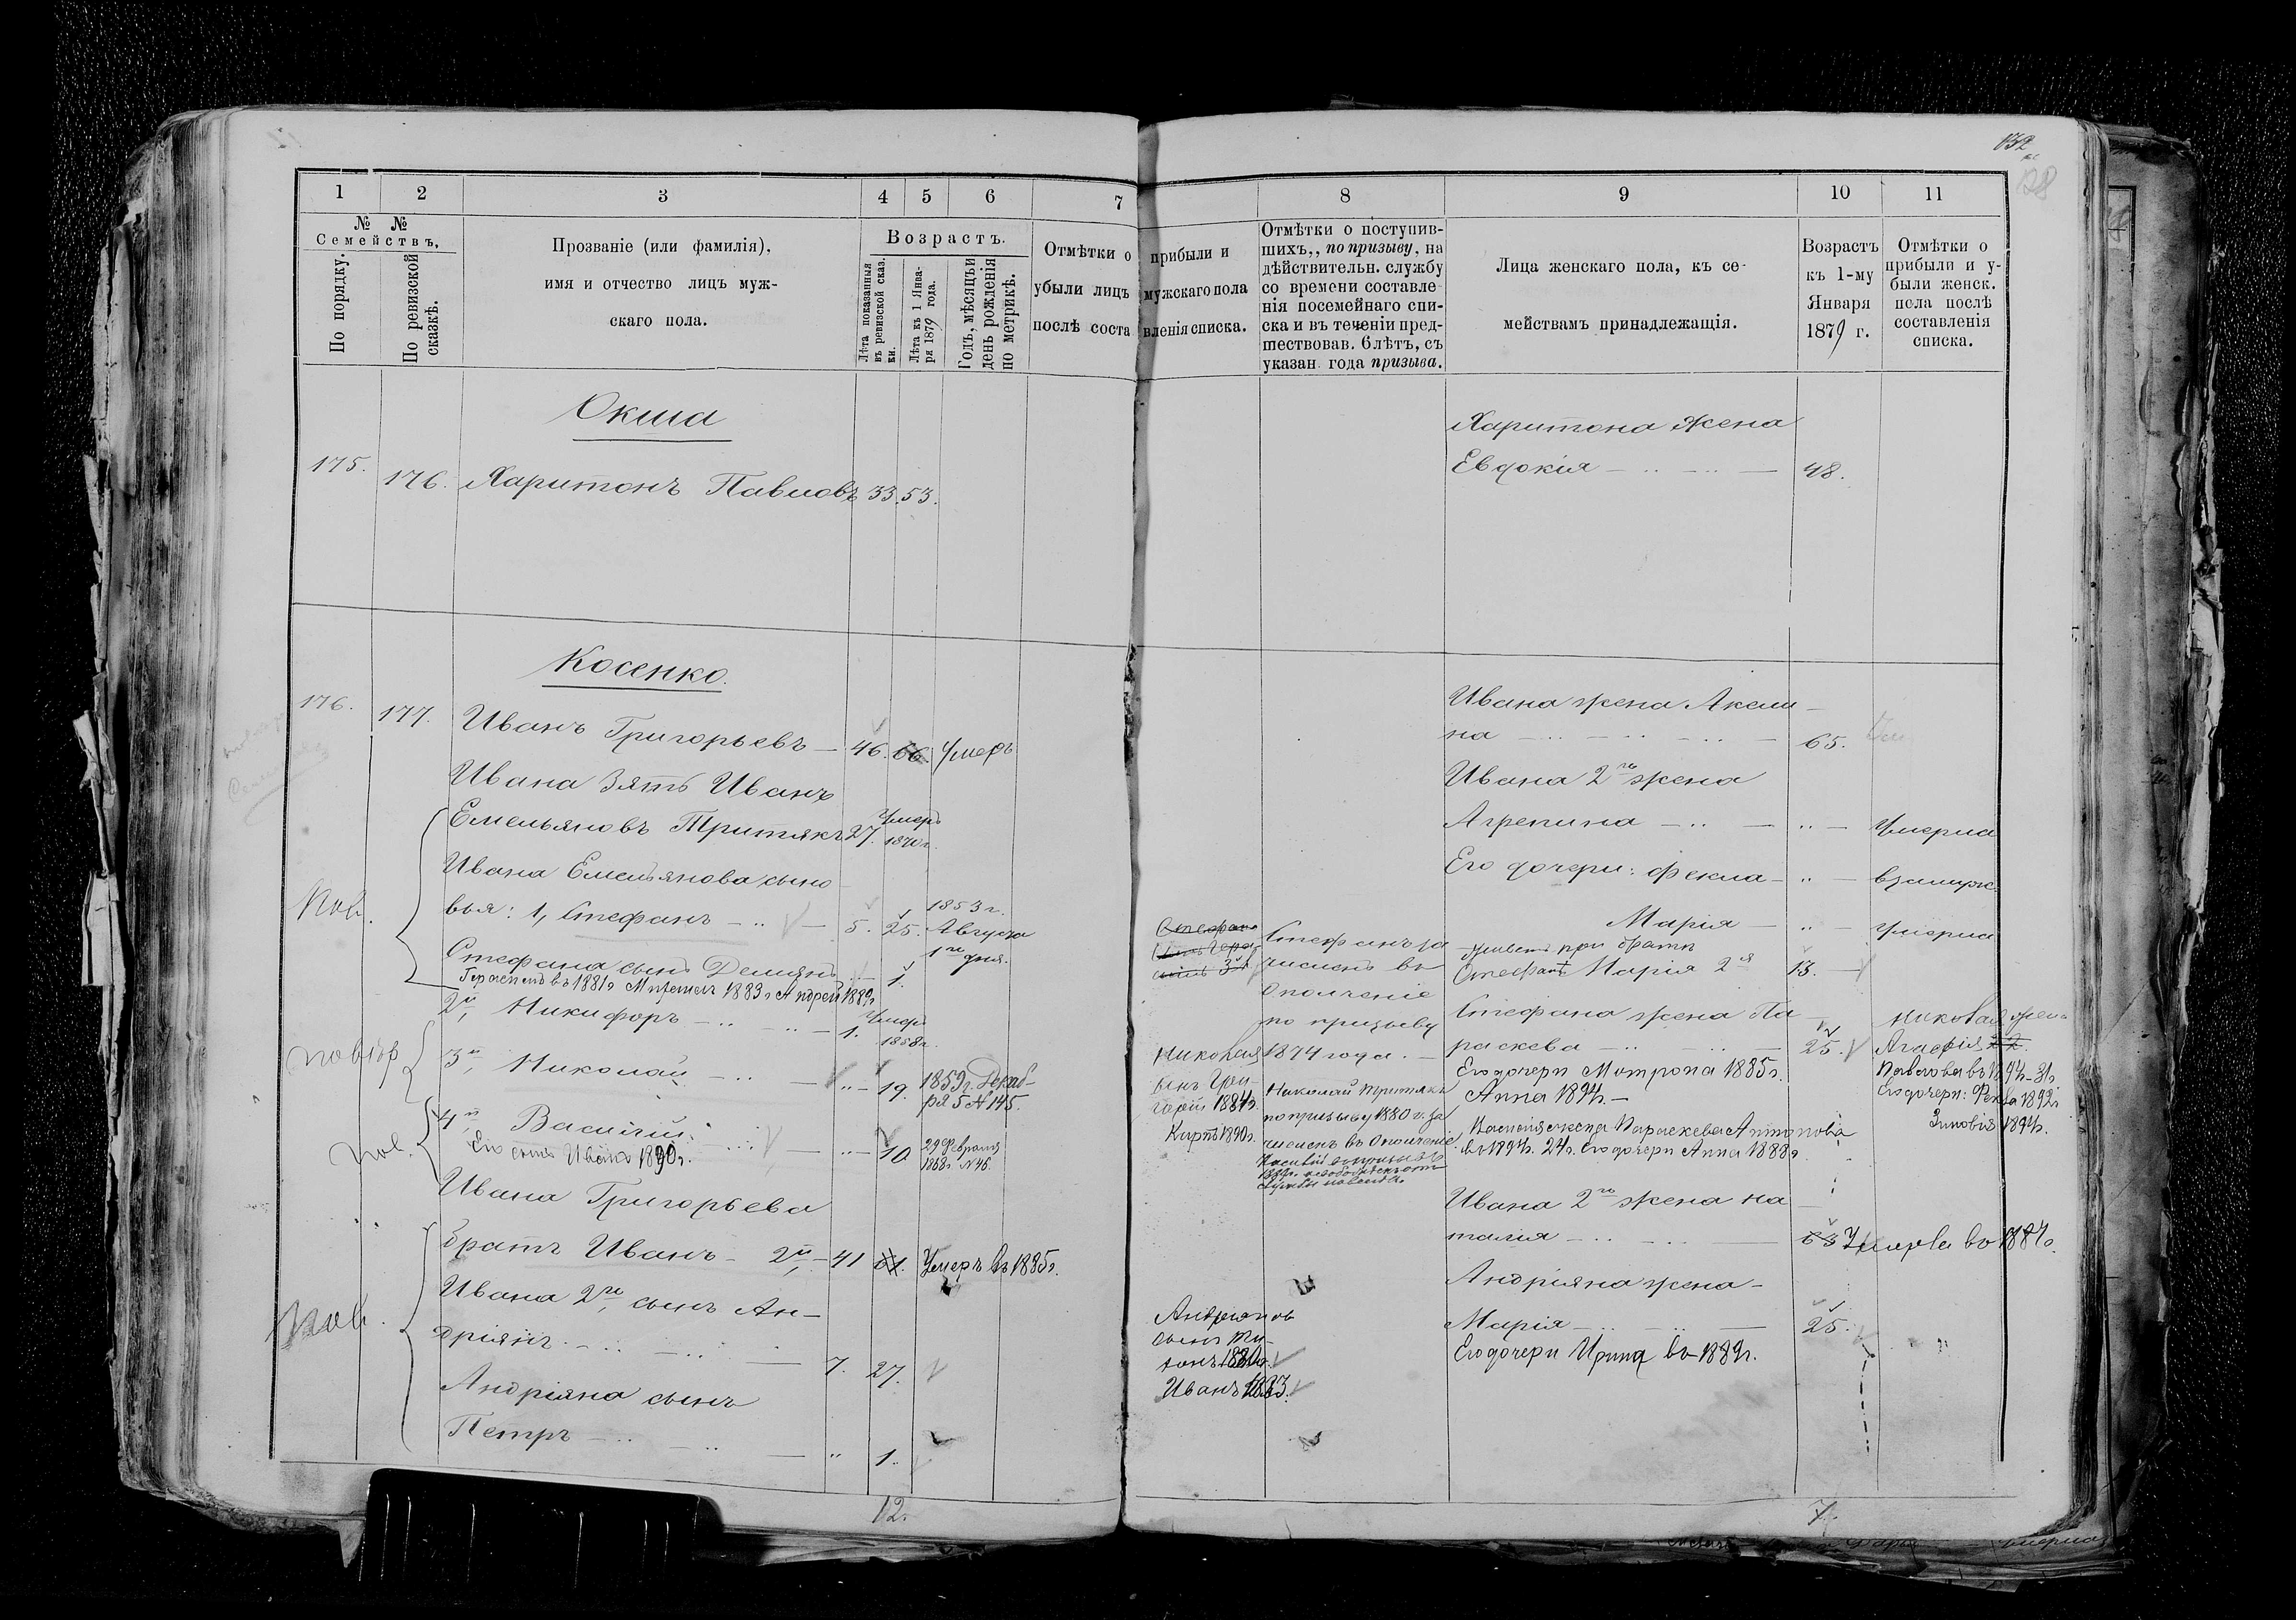 132
128
1 2 3 4 5 6 7 8 9 10 11
№ №
Семействъ.
По порядку.
По ревизской сказкѣ.
Прозваніе (или фамилія),
имя и отчество лицъ муж-
скаго пола.
Возрастъ.
Лѣта показанныя въ ревизской сказ. ки.
Лѣта къ 1 Янва- ря 1879 года.
Годъ, мѣсяцъ и день рожденія по метрикѣ.
Отмѣтки о прибыли и
убыли лицъ мужскаго пола
послѣ соста вленія списка.
Отмѣтки о поступив-
шихъ,, по призыву, на
дѣйствительн. службу
со времени составле
нія посемейнаго спи-
ска и въ теченіи пред-
шествовав. 6 лѣтъ, съ
указан. года призыва.
Лица женскаго пола, къ се-
мействамъ принадлежащія.
Возрастъ
къ 1-му
Января
1879 г.
Отмѣтки о
прибыли и у-
были женск.
пола послѣ
составленія
списка.
Окша
175. 176. Харитонъ Павловъ 33. 53.
Харитона жена
Евдокія 48.
Косенко.
176. 177. Иванъ Григорьевъ — 46. 66. Умеръ
Ивана зять Иванъ
Емельяновъ Тритякъ 27. Умеръ
1870 г.
Ивана Емельянова сыно
вья: 1, Стефанъ 5. 25. 1853 г.
Августа
1го дня.
Стефана сынъ Демьянъ 1.
Герасимъ въ 1881 г. 1883 г Андрей 1889 г
2й, Никифоръ 1. Умеръ
1858 г.
3й, Николай 19. 1859 г. Декаб-
ря 5 № 145.
4й, Василій 10 29 Февраля
1868 г. № 46.
Его сынъ Иванъ 1890 г.
Ивана Григорьева
братъ Иванъ 2й, 41 61. Умеръ въ 1885 г.
Ивана 2го, сынъ Ан-
дріянъ 7. 27.
Андріяна сынъ
Петръ 1.
12.
Стефана
Николая
сынъ Гри-
горій 1884 г.
Кирилъ 1890 г.
Андріяновъ
сынъ Ти-
хонъ 1880 г.
Иванъ 1883.
Стефанъ за
численъ въ
Ополченіе
по призыву
1874 года.
Николай Тритякъ
по призыву 1880 г. за
численъ въ Ополченіе
Ивана жена Акели-
на 65.
Ивана 2го жена
Агрепина Умерла
Его дочери: Фекла взамужс.
Марія Умерла
живетъ при братѣ
Стефанѣ Марія 2я 13.
Стефана жена Па
раскева 25.
Его дочери Мотрона 1885 г.
Анна 1894 г.
Николая жена
Агафія 22.
Павлова въ 1894 г. 31 г.
Его дочери: Фекла 1892 г
Зиновія 1894 г.
Василія жена Параскева Антонова
въ 1894 г. 24 г. Его дочери Анна 1888 г
Ивана 2го жена На
талія 63 Умерла въ 1887 г.
Андріяна жена
Марія 25.
Его дочери Ирина въ 1889 г.
7.